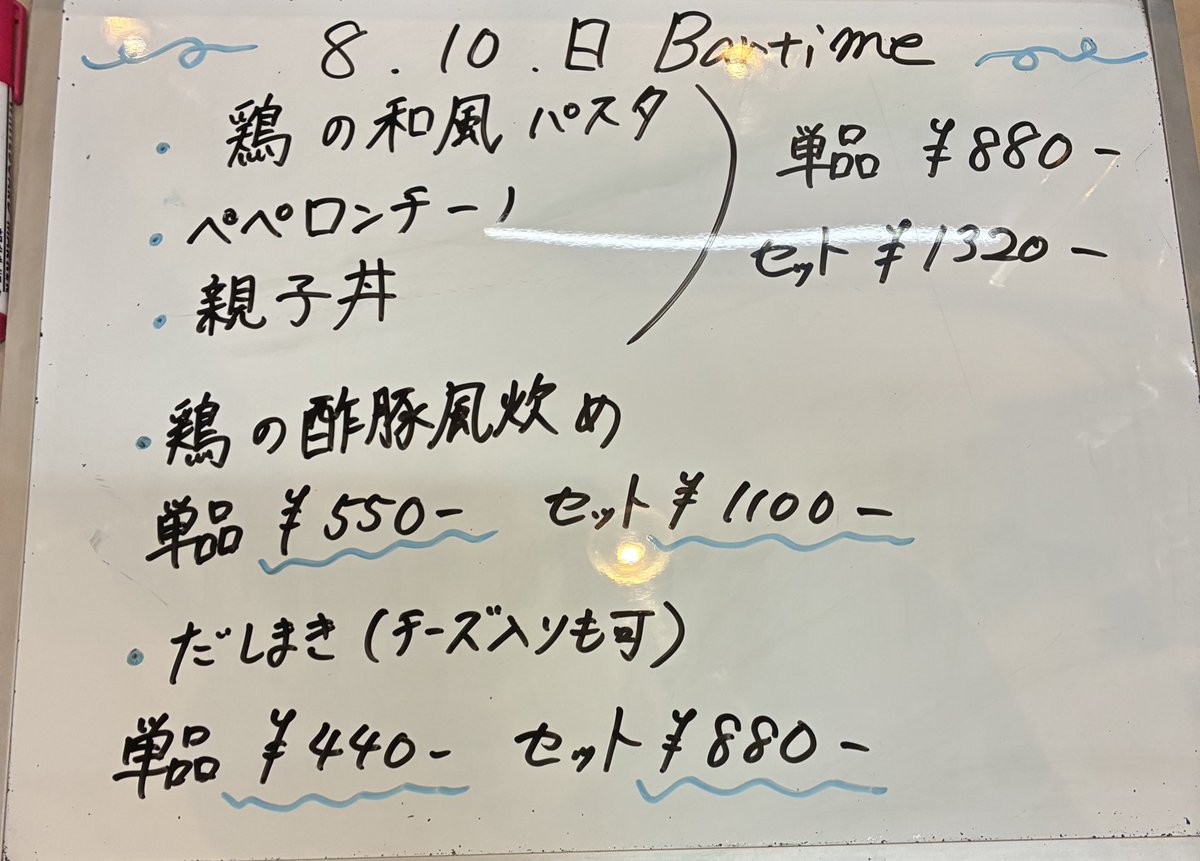 8.10.日 Bartime
・鶏の和風パスタ
・ペペロンチーノ
・親子丼
単品 ¥880-
セット ¥1320-
・鶏の酢豚風炊め
単品 ¥550- セット ¥1100-
・だしまき(チーズ入りも可)
単品 ¥440- セット ¥880-